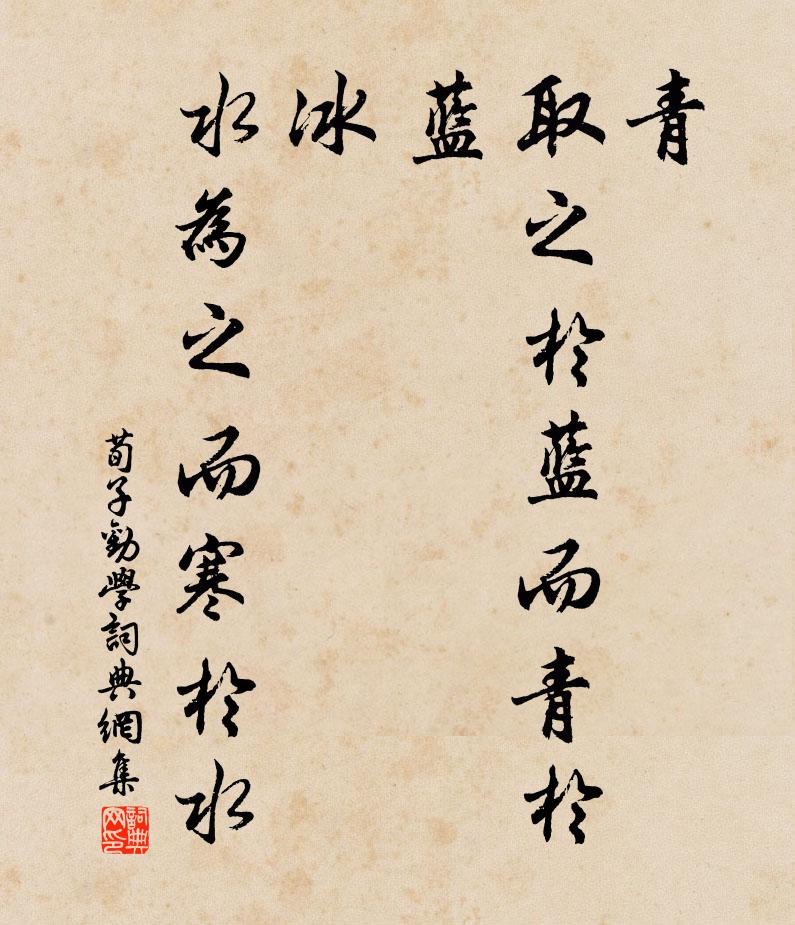 青
取之於藍而青於
藍
冰
水為之而寒於水
荀子勸學詞典網集
詞典
网印